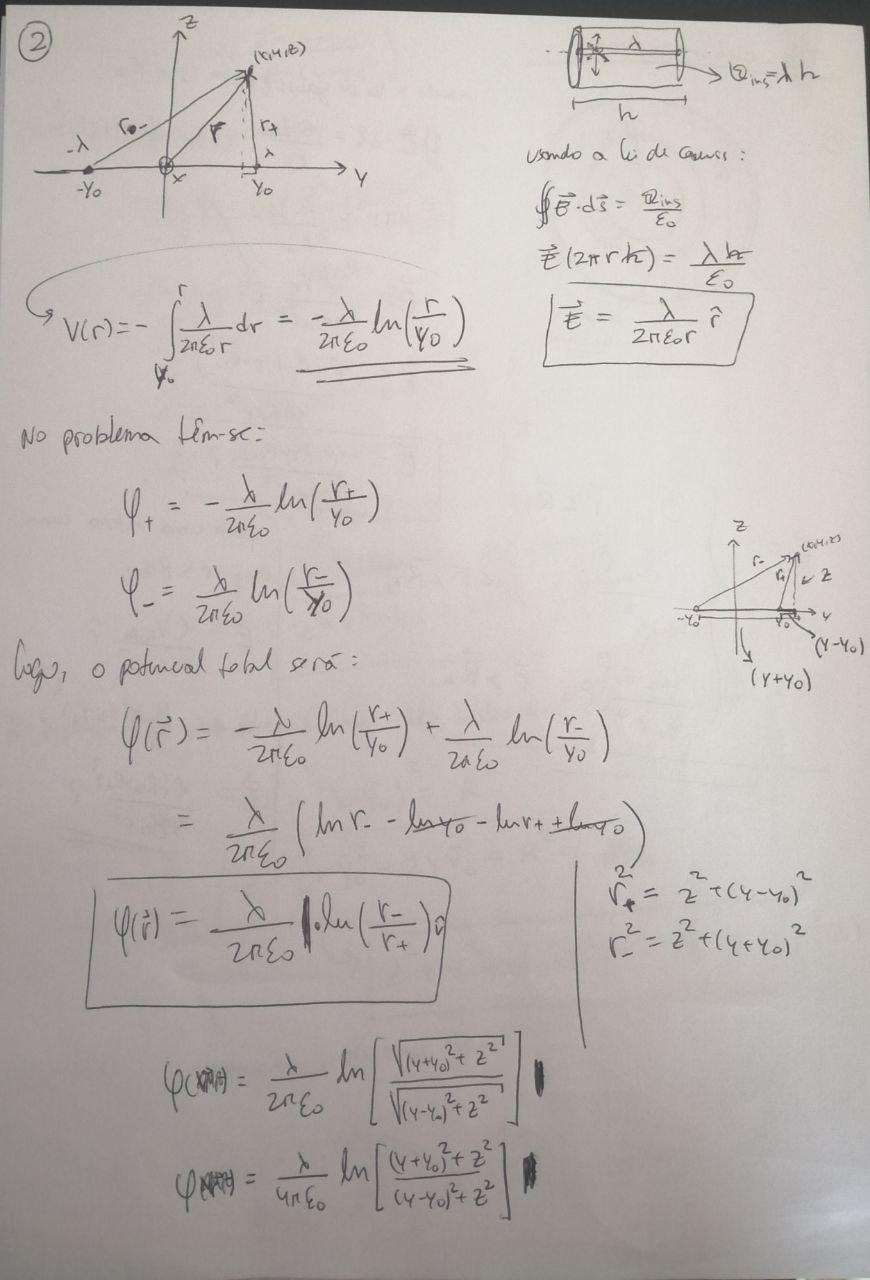 ②
Z
(x,y,z)
r₋
r⃗
r₊
-λ
λ
-y₀
x
y₀
Y
λ
Q_ins = λ h
h
usando a lei de Gauss:
∯ E⃗·ds⃗ = Q_ins/ε₀
E⃗ (2πrh) = λh/ε₀
E⃗ = λ/(2πε₀r) r̂
V(r) = - ∫_{y₀}^{r} λ/(2πε₀r) dr = -λ/(2πε₀) ln(r/y₀)
No problema têm-se:
φ₊ = - λ/(2πε₀) ln(r₊/y₀)
φ₋ = λ/(2πε₀) ln(r₋/y₀)
Z
(x,y,z)
r₋
r₊
z
-y₀
y₀
Y
(y-y₀)
(y+y₀)
Logo, o potencial total será:
φ(r⃗) = - λ/(2πε₀) ln(r₊/y₀) + λ/(2πε₀) ln(r₋/y₀)
= λ/(2πε₀) (ln r₋ - ln y₀ - ln r₊ + ln y₀)
φ(r⃗) = λ/(2πε₀) · ln(r₋/r₊)
r₊² = z² + (y-y₀)²
r₋² = z² + (y+y₀)²
φ = λ/(2πε₀) ln[√((y+y₀)² + z²) / √((y-y₀)² + z²)]
φ = λ/(4πε₀) ln[((y+y₀)² + z²) / ((y-y₀)² + z²)]